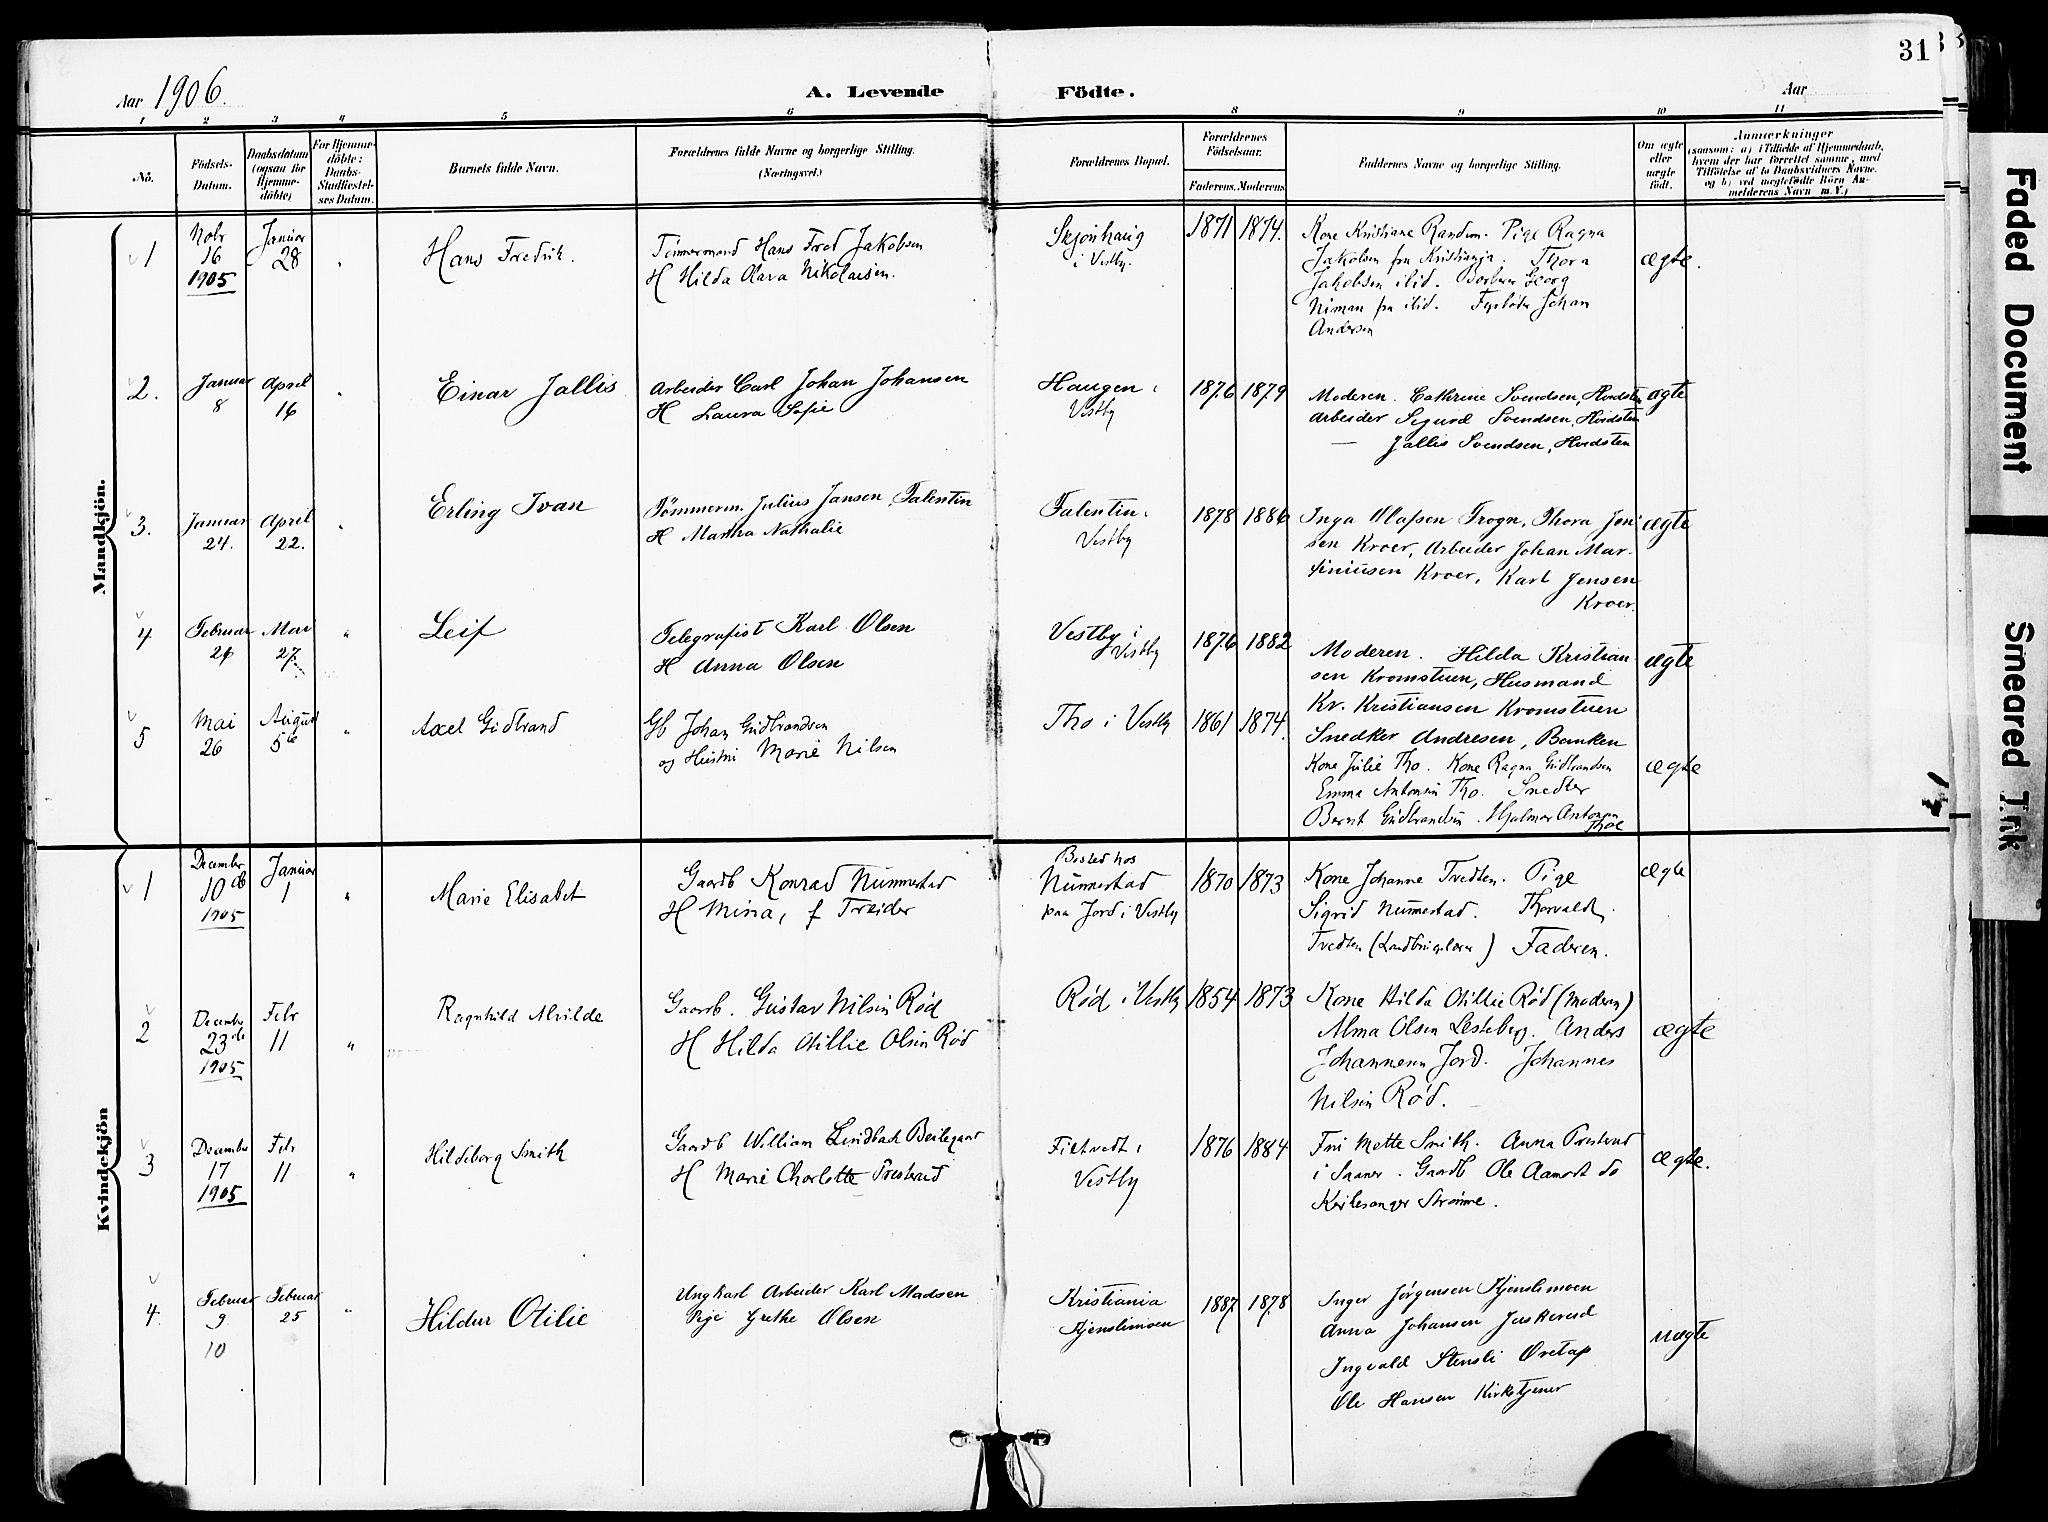 31
Aar 1906.
A. Levende Födte.
Aar
1 2 3 4 5 6 8 9 10 11
No.
Födsels-
Datum.
Daabsdatum
(ogsaa for
Hjemme-
döbte)
For Hjemme-
döbte:
Daabs-
Stadfæstel-
ses Datum.
Barnets fulde Navn.
Forældrenes fulde Navne og borgerlige Stilling.
(Næringsvei.)
Forældrenes Bopæl.
Forældrenes
Födselsaar.
Faderens. Moderens.
Faddernes Navne og borgerlige Stilling.
Om ægte
eller
uægte
födt.
Anmærkninger
(saasom: a) i Tilfælde af Hjemmedaab,
hvem der har forrettet samme, med
Tilföielse af to Daabsvidners Navne,
og b) ved uægtefödte Börn An-
melderens Navn m. V.)
Mandkjön.
1
Novbr
16
1905
Januar
28
"
Hans Fredrik.
Tømmermand Hans Fred Jakobsen
H Hilda Clara Nikolaisen.
Skjønhaug
i Vestby.
1871
1874.
Kone Kristiane Randem. Pige Ragna
Jakobsen fra Kristiania. Thora
Jakobsen ibid. Barberer Georg
Niman fra ibid. Fyrbøder Johan
Andersen
ægte.
2.
Januar
8
April
16
"
Einar Jallis
Arbeider Carl Johan Johansen
H Laura Sofie
Haugen i
Vestby
1876
1879
Moderen. Cathrine Svendsen, Hvidsten
Arbeider Sigurd Svendsen, Hvidsten
— Jallis Svendsen, Hvidsten
ægte
3.
Januar
24.
April
22.
"
Erling Ivan
Tømmerm. Julius Jansen, Falentin
H Martha Nathalie
Falentin i
Vestby
1878
1886
Inga Olafsen Trogn, Thora Jen-
sen Kroer, Arbeider Johan Mar-
tiniusen Kroer, Karl Jensen
Kroer.
ægte
4
Februar
21
Mai
27.
"
Leif
Telegrafist Karl Olsen
H Anna Olsen
Vestby i
Vestby
1876
1882
Moderen. Hilda Kristian-
sen Kromstuen, Husmand
Kr. Kristiansen Kromstuen
Snedker Andresen, Banken
ægte
5
Mai
26
August
5te
"
Axel Gudbrand
Gb Johan Gudbrandsen
og Hustru Marie Nilsen
Tho i Vestby
1861
1874.
Kone Julie Tho. Kone Ragna Gudbrandsen
Emma Antonsen Tho. Snedker
Bernt Gudbrandsen. Hjalmar Antonsen
Thoe
ægte
Kvindekjön
1
December
10de
1905
Januar
1
"
Marie Elisabet
Gaardb Konrad Nummestad
H Mina, f Treider
Bosted hos
Nummestad
paa Jord i Vestby
1870
1873
Kone Johanne Tvedten. Pige
Sigrid Nummestad. Thorvald
Tvedten (Landbrugslærer) Faderen.
ægte
2
December
23de
1905
Febr
11
"
Ragnhild Alvilde
Gaardb. Gustav Nilsen Rød
H Hilda Otillie Olsen Rød
Rød i Vestby
1854
1873
Kone Hilda Otillie Rød (Moderen)
Alma Olsen Lesteberg. Anders
Johannesen Jord. Johannes
Nilsen Rød.
ægte
3
December
17
1905
Febr
11
"
Hildeborg Smith
Gaardb William Lindbach Beilegaard
H Marie Charlotte Prestrud
Filtvedt i
Vestby
1876
1884
Fru Mette Smith. Anna Prestrud
i Saaner. Gaardb Ole Aamodt do
Kirkesanger Strømme.
ægte.
4.
Februar
9
10
Februar
25
"
Hildur Otilie
Ungkarl Arbeider Karl Madsen
Pige Grethe Olsen
Kristiania
Kjenslimoen
1887
1878
Inger Jørgensen Kjenslimoen
Anna Johansen Juskerud
Ingvald Stensli Øretap
Ole Hansen Kirketjener
uægte
Faded Document
Smeared Ink